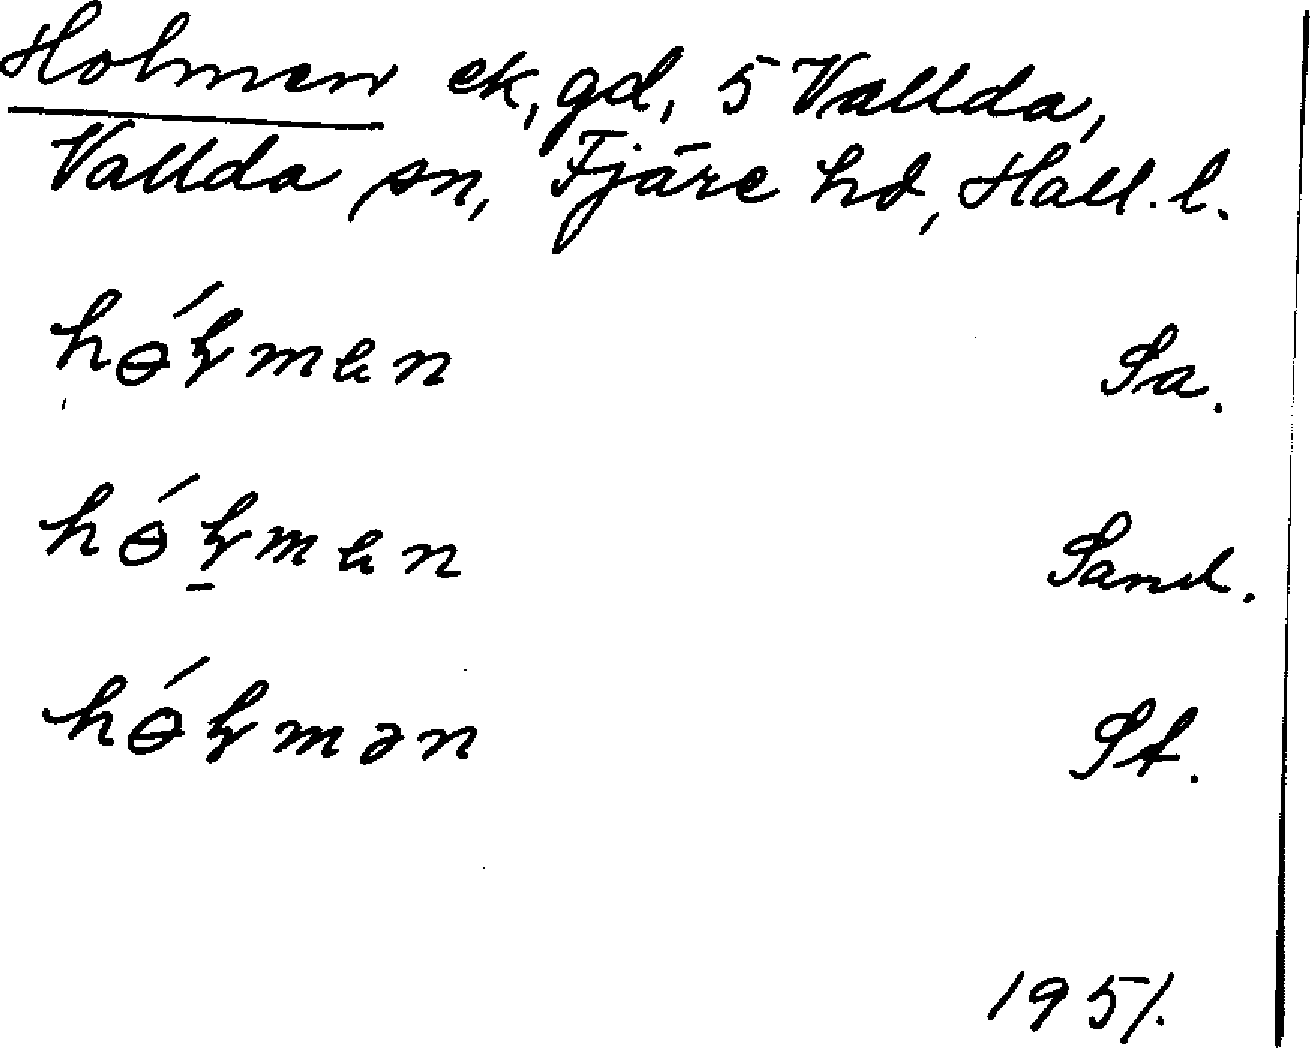 Holmen ek, gd, 5 Vallda,
Vallda sn, Fjäre hd, Hall. l.
hɵ́ɽmen Sa.
hɵ́ɽ̲men Sand.
hɵ́ɽmən St.
1951.